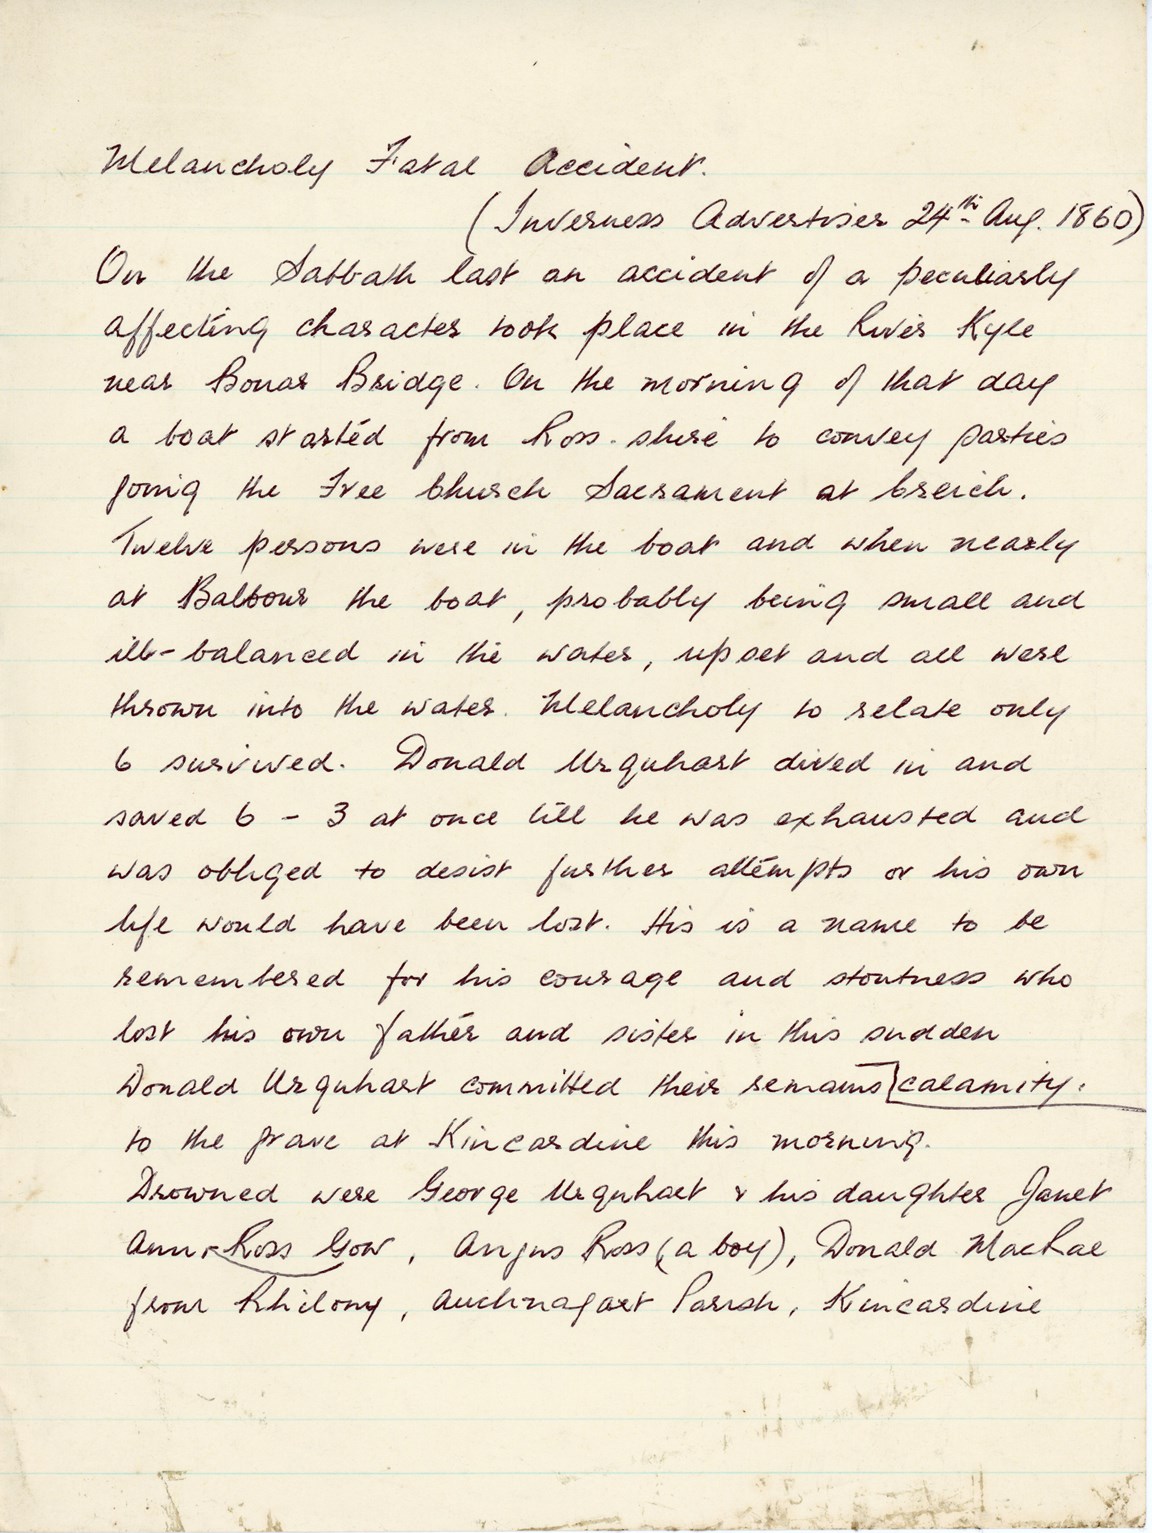 Melancholy Fatal Accident.
(Inverness Advertiser 24th Aug. 1860)
On the Sabbath last an accident of a peculiarly
affecting character took place in the River Kyle
near Bonar Bridge. On the morning of that day
a boat started from Ross-shire to convey parties
going the Free Church Sacrament at Creich.
Twelve persons were in the boat and when nearly
at Balbour the boat, probably being small and
ill-balanced in the water, upset and all were
thrown into the water. Melancholy to relate only
6 survived. Donald Urquhart dived in and
saved 6 - 3 at once till he was exhausted and
was obliged to desist further attempts or his own
life would have been lost. His is a name to be
remembered for his courage and stoutness who
lost his own father and sister in this sudden
Donald Urquhart committed their remains] calamity.
to the grave at Kincardine this morning.
Drowned were George Urquhart & his daughter Janet
Ann Ross Gow, Angus Ross (a boy), Donald MacRae
from Rhilony, Auchnagart Parish, Kincardine